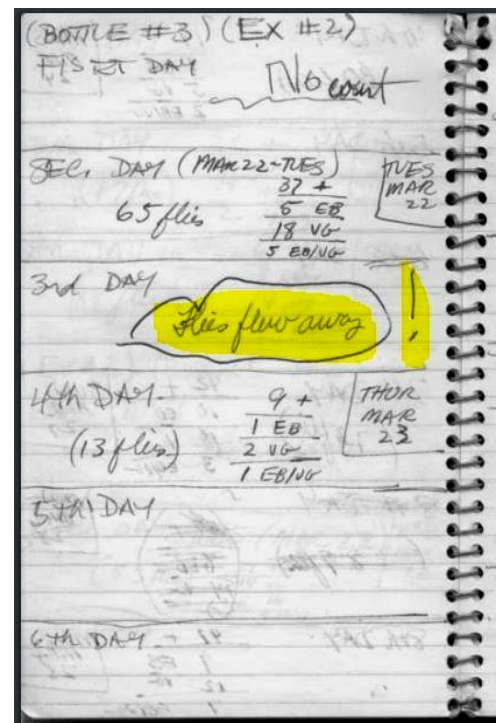 (BOTTLE #3) (EX #2)
FISRT DAY
No count
SEC. DAY (MAR 22-TUES)
TUES
MAR
22
65 flies
37 +
5 EB
18 VG
5 EB/VG
3rd DAY
Flies flew away !
4th DAY.
(13 flies)
9 +
1 EB
2 VG
1 EB/VG
THUR
MAR
23
5th DAY
6th DAY